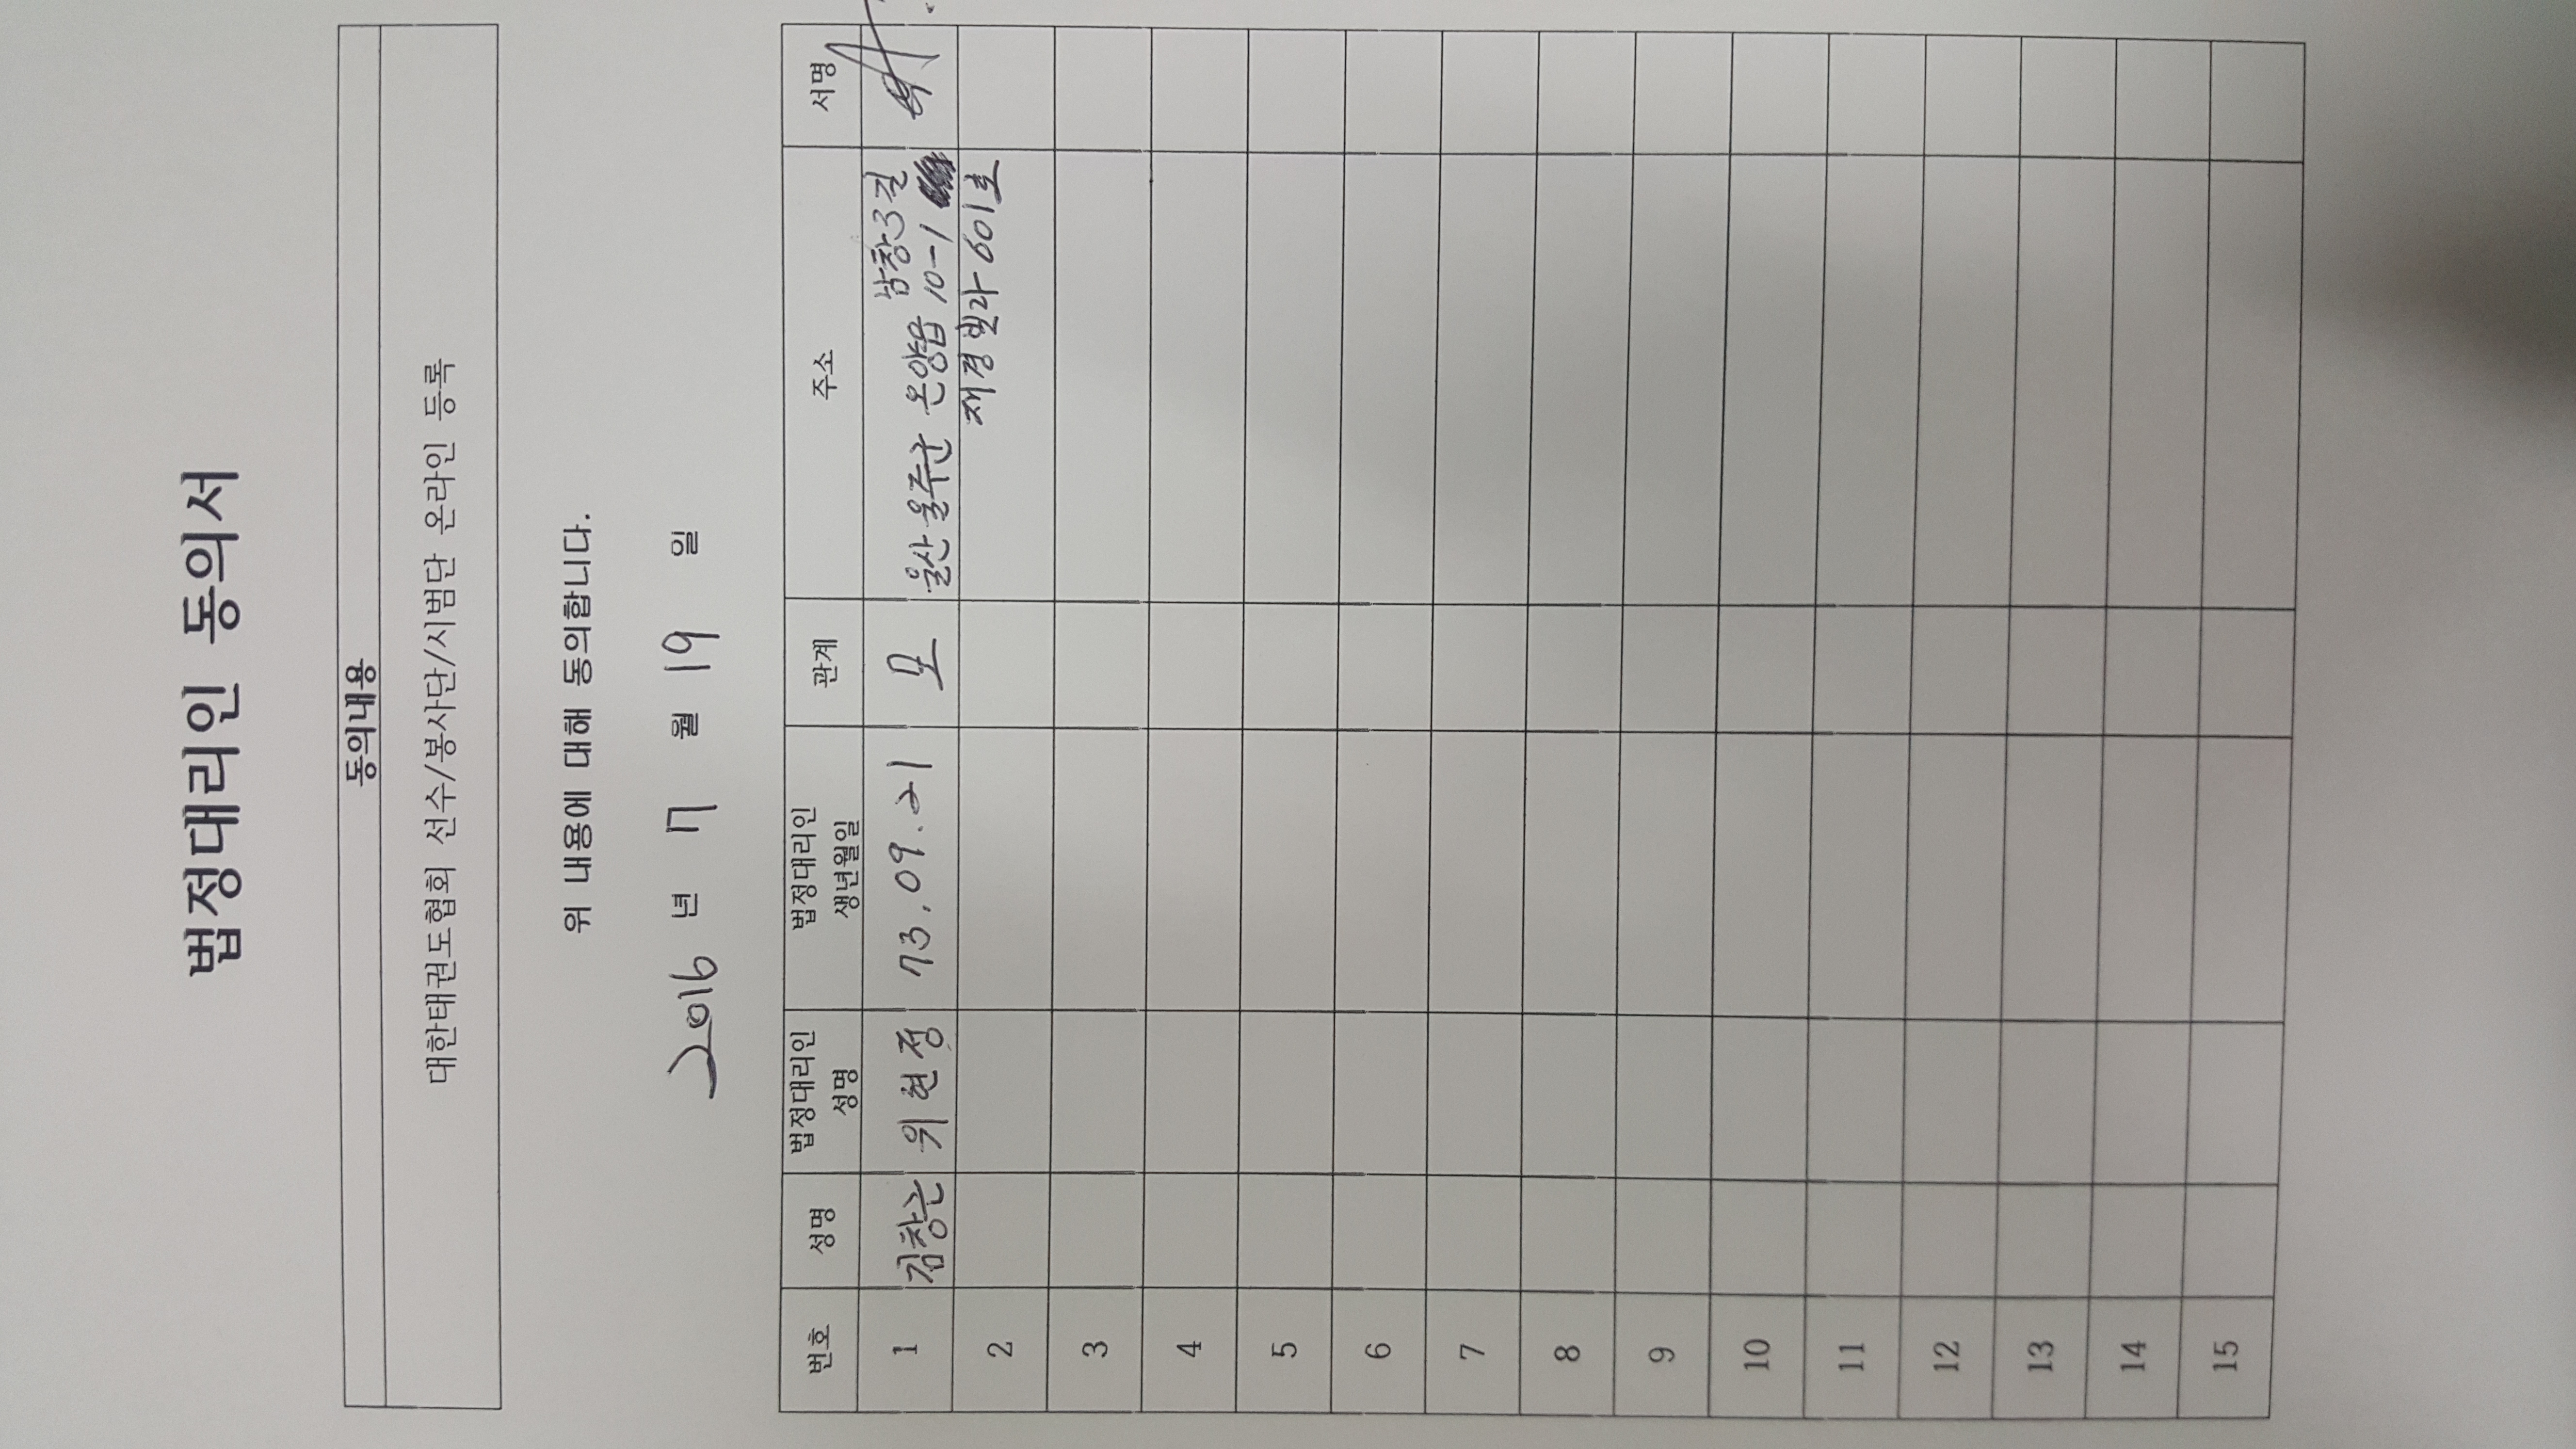 법정대리인 동의서
동의내용
대한태권도협회 선수/봉사단/시범단 온라인 등록
위 내용에 대해 동의합니다.
2016 년 7 월 19 일
번호 성명 법정대리인 성명 법정대리인 생년월일 관계 주소 서명
1 김창근 위현정 73.09.21 모 울산 울주군 온양읍 남창3길 10-1
재경빌라 601호
2
3
4
5
6
7
8
9
10
11
12
13
14
15